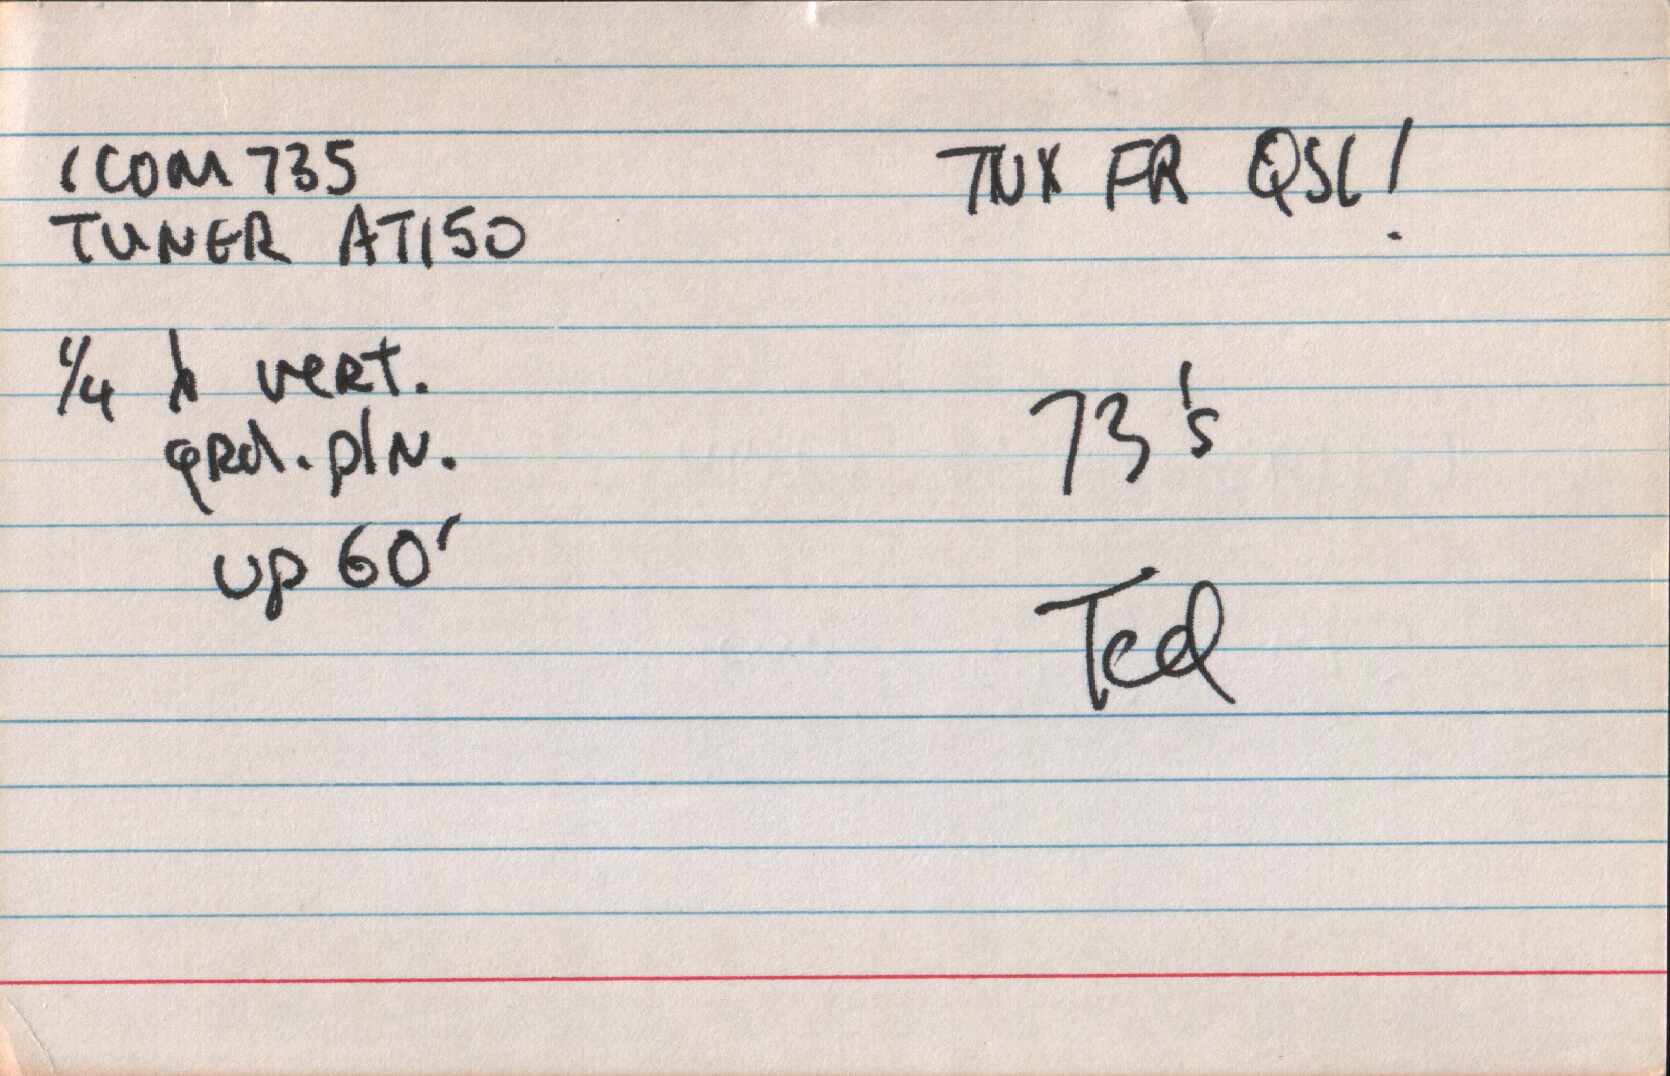 ICOM 735
TUNER AT150
1/4 λ vert.
grd. pln.
up 60'
TNX FR QSL!
73's
Ted